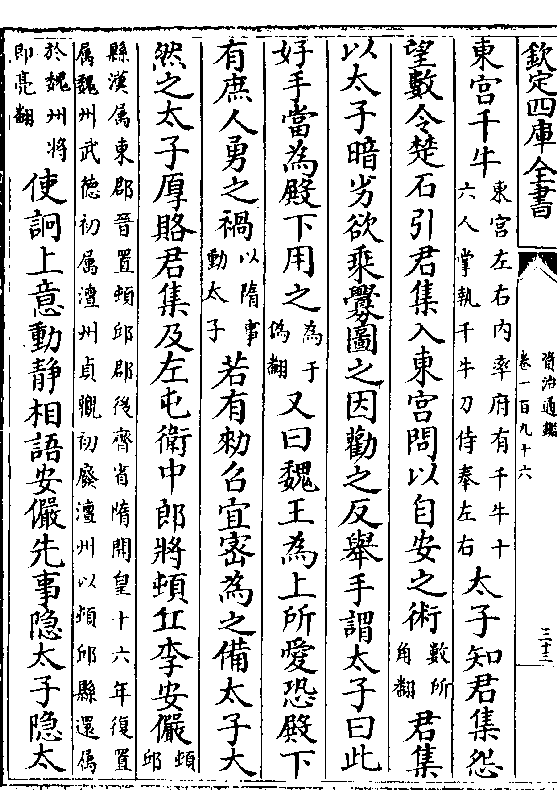 欽定四庫全書
資治通鑑
卷一百九十六
三十三
東宮千牛東宮左右内率府有千牛十六人掌執千牛刀侍奉左右太子知君集怨
望數令楚石引君集入東宮問以自安之術數所角翻君集
以太子暗劣欲乘釁圖之因勸之反舉手謂太子曰此
好手當為殿下用之為于偽翻又曰魏王為上所愛恐殿下
有庶人勇之禍以隋事動太子若有勑召宜宻為之備太子大
然之太子厚賂君集及左屯衛中郎將頓丘李安儼頓邱
縣漢屬東郡晉置頓邱郡後齊省隋開皇十六年復置
屬魏州武德初屬澶州貞觀初廢澶州以頓邱縣還屬
於魏州將即亮翻使詗上意動靜相語安儼先事隐太子隐太